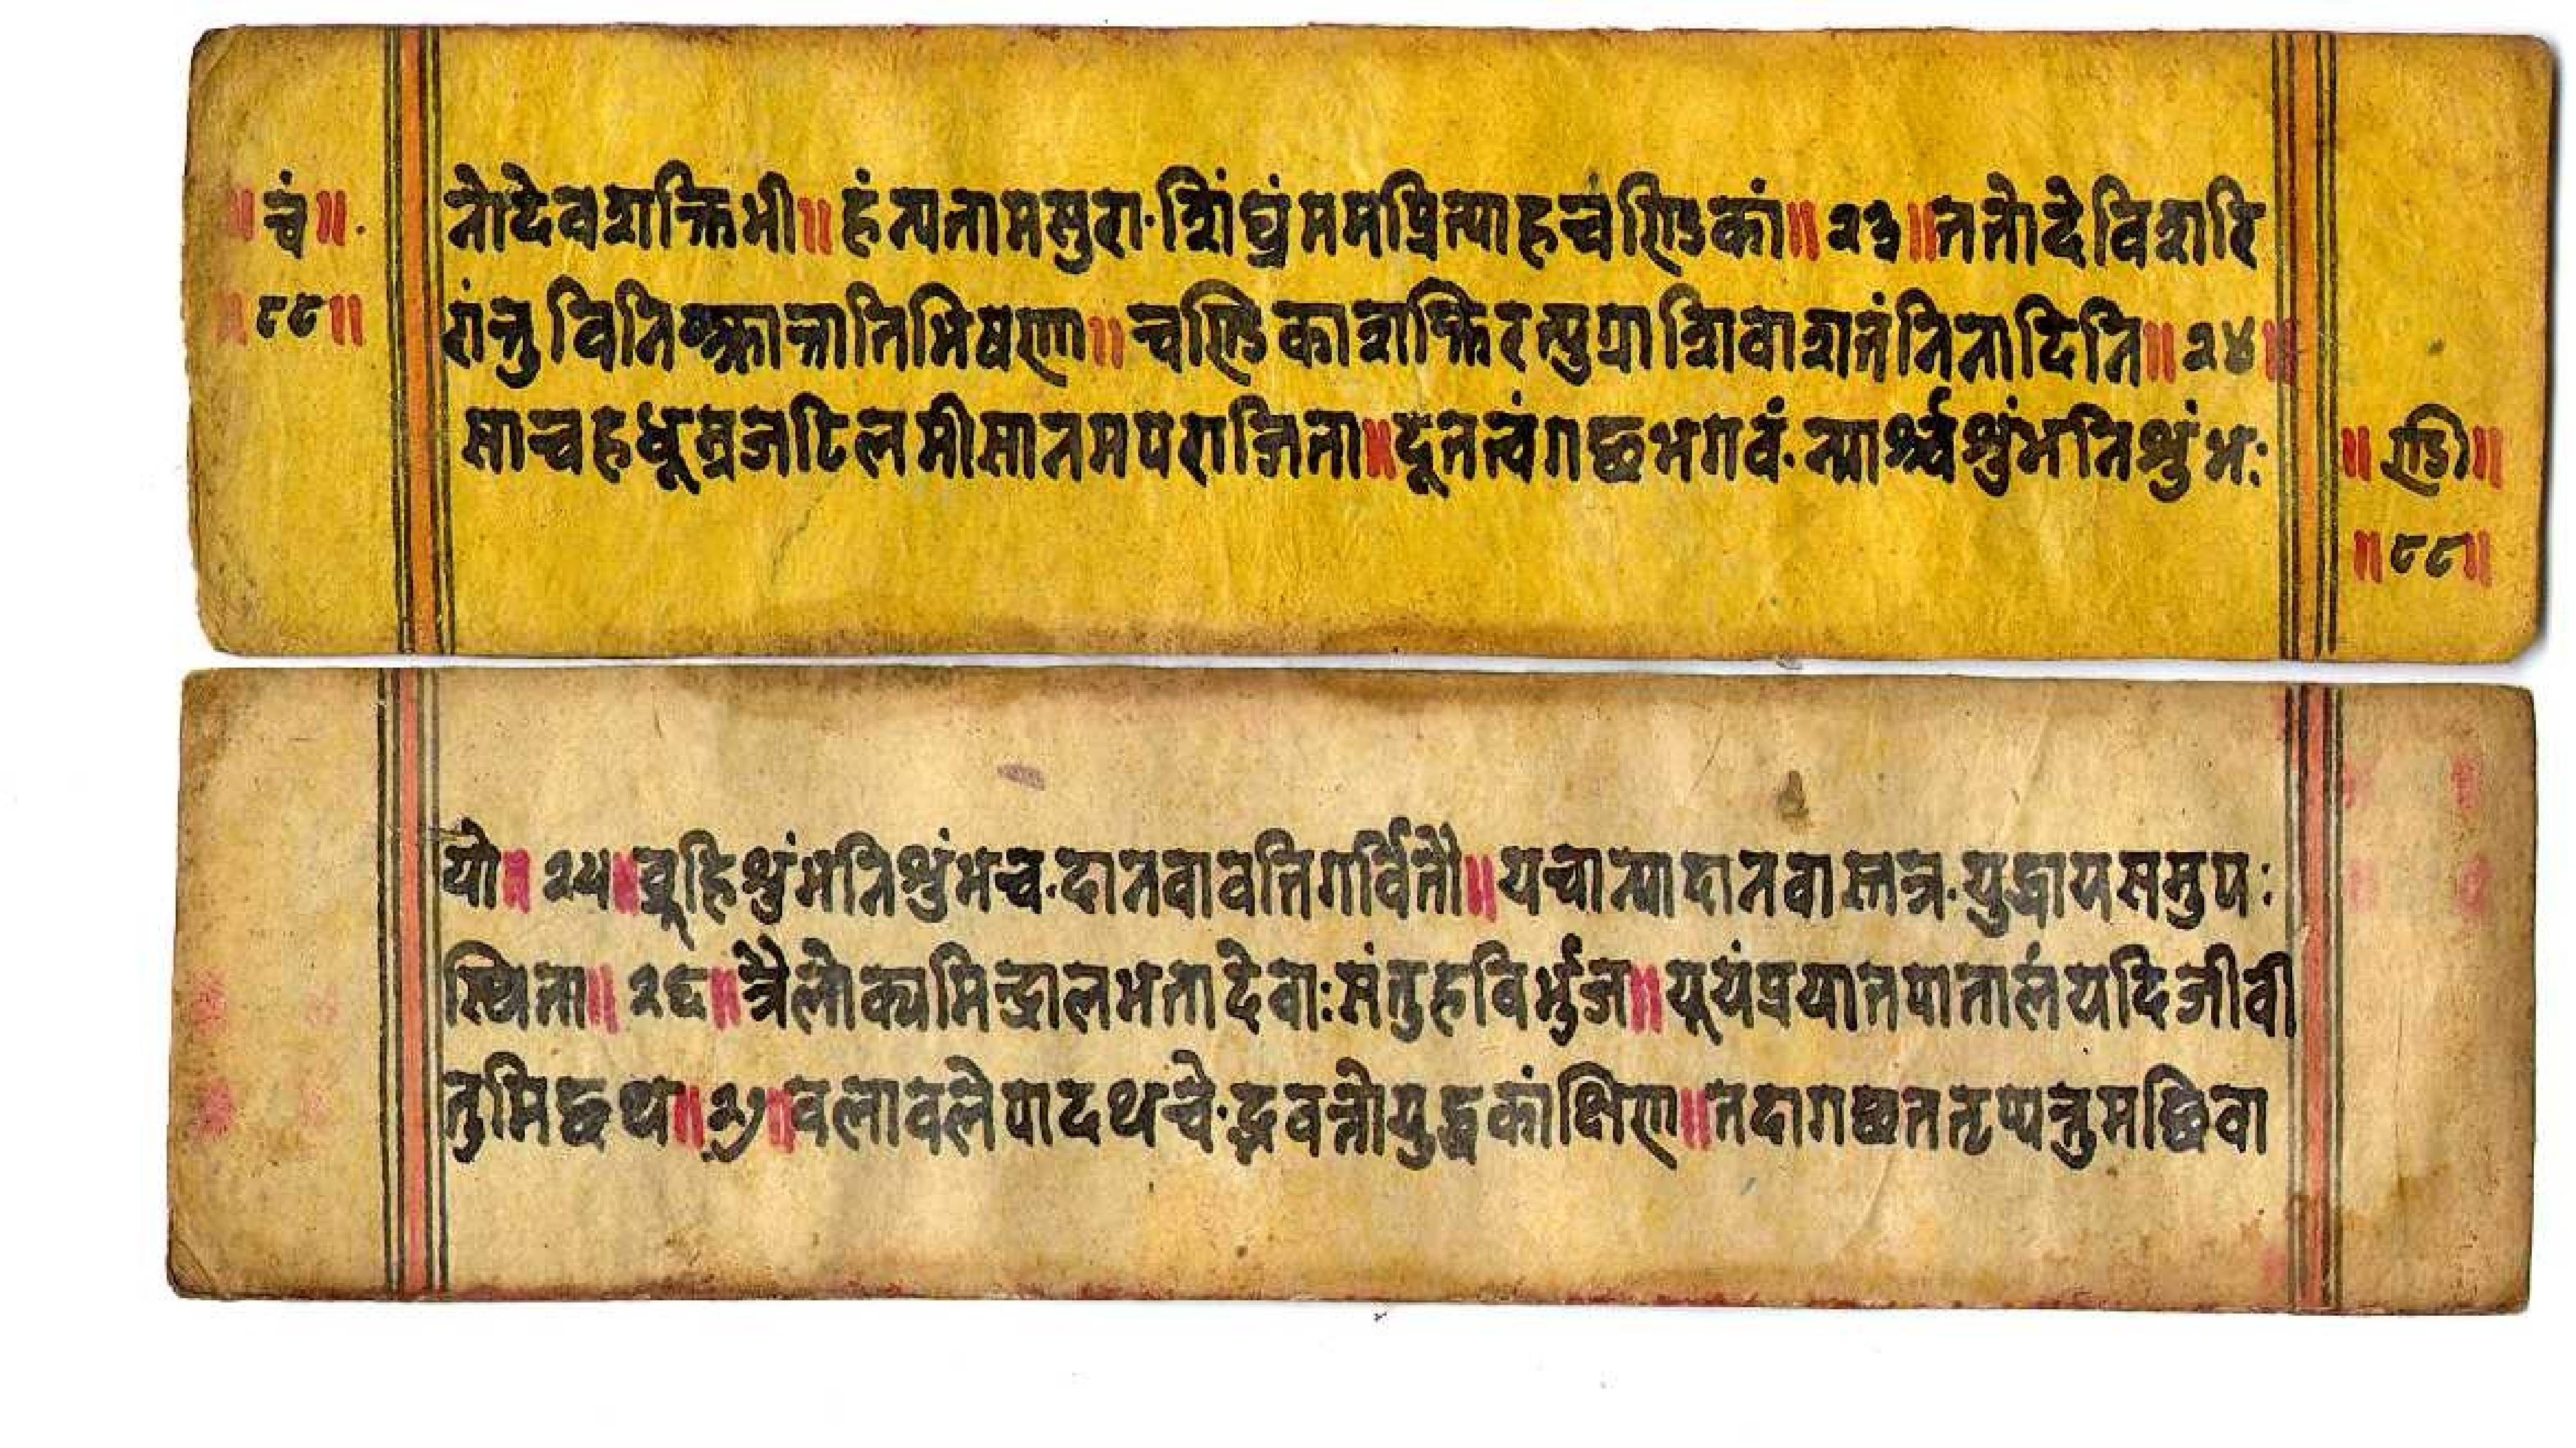 ॥ चं ॥
॥ ८८ ॥
तोदेवशक्तिभी॥हंन्यतामसुरा·शिंघ्रंममप्रित्याहचण्डिकां॥२३॥ततोदेविशरि
रांत्तुविनिष्क्रान्तातिभिषणा॥चण्डिकाशक्तिरत्युग्राशिवाशतंनिनादिनि॥२४॥
साचहधूम्रजटिलमीसानमपराजिता॥दूतत्वंगच्छभगवं·त्पार्श्वंशुंभनिशुंभः
॥ण्डी॥
॥८८॥
यो॥२५॥ब्रूहिशुंभनिशुंभच·दानवावतिगर्वितौ॥यचान्यादानवास्तत्र·युद्धायसमुपः
स्थिता॥२६॥त्रैलोक्यमिन्द्रालभतादेवाःसंतुहविर्भुज॥यूयंप्रयातपातालंयदिजीवी
तुमिछथ॥२७॥वलावलेपादथचे·द्भवन्तोयुद्धकांक्षिण॥तदागछततृप्यन्तुमछिवा